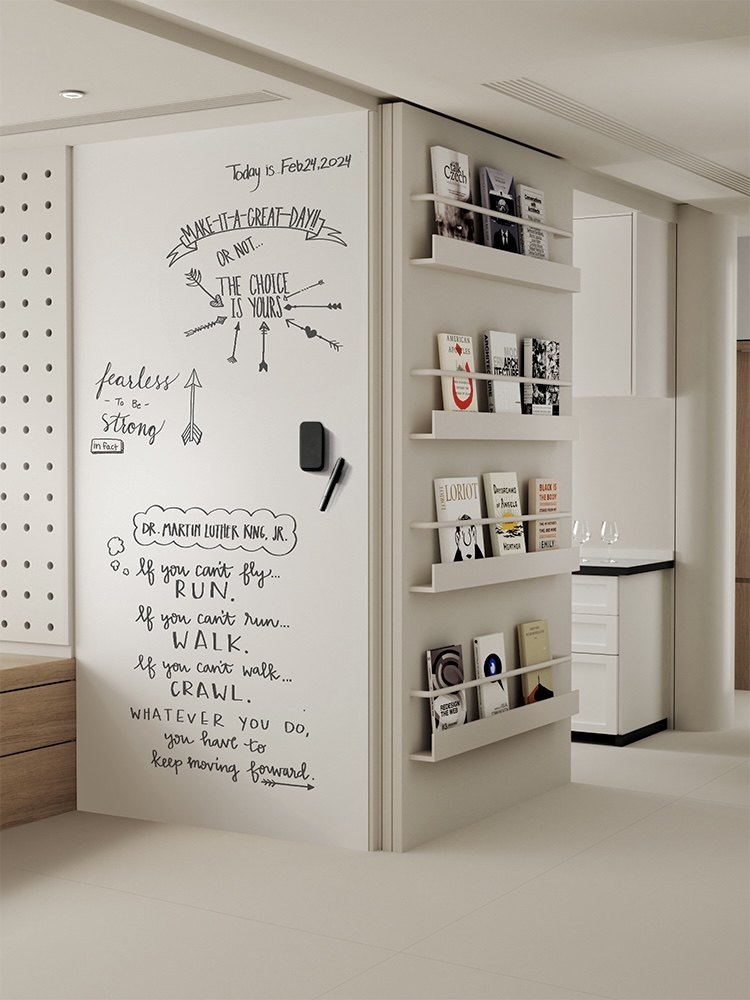 Today is Feb 24, 2024
MAKE-IT-A-GREAT-DAY!!
OR NOT...
THE CHOICE
IS YOURS
fearless
- To Be -
strong
in fact
DR. MARTIN LUTHER KING, JR.
If you can't fly...
RUN.
If you can't run...
WALK.
If you can't walk...
CRAWL.
WHATEVER YOU DO,
you have to
keep moving forward.
talk
Czech
Conversations
with
Architects
AMERICAN
LORIOT
DAYDREAMS
OF ANGELS
HEATHER
BLACK IS
THE BODY
EMILY
REDESIGN
THE WEB